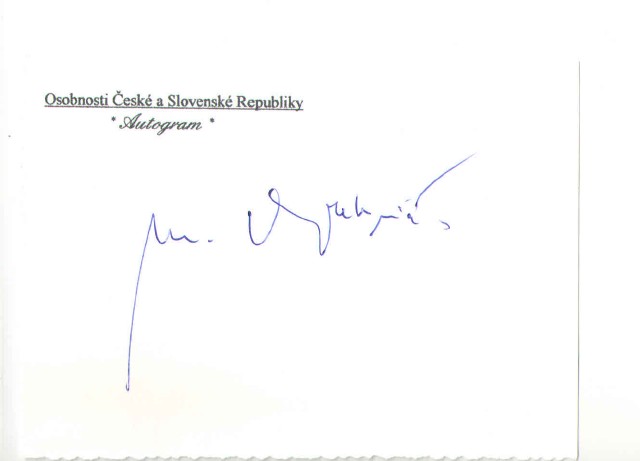 Osobnosti České a Slovenské Republiky
* Autogram *
M.